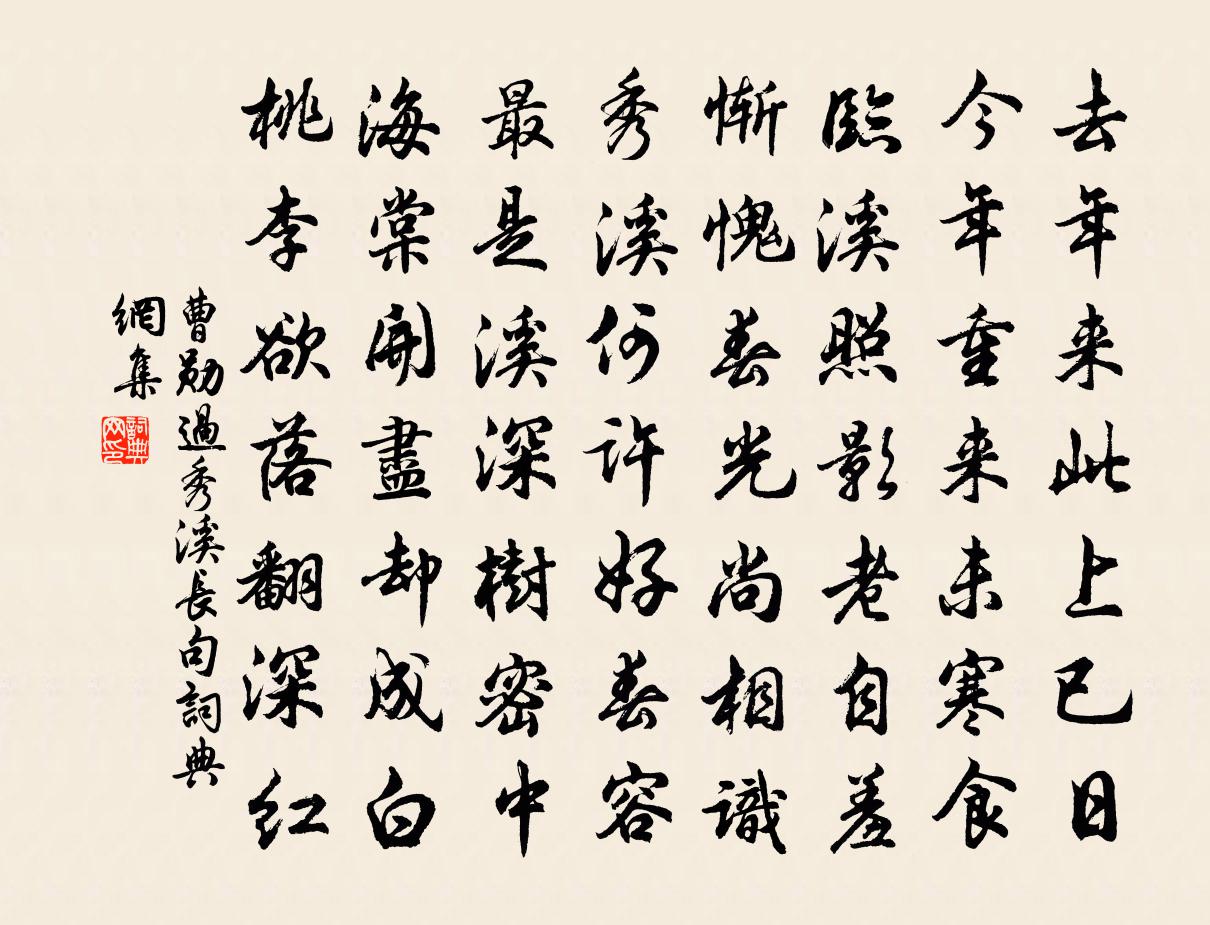 去年来此上巳日
今年重来未寒食
臨溪照影老自羞
慚愧春光尚相識
秀溪何許好春容
最是溪深樹密中
海棠開盡却成白
桃李欲落翻深红
曹勛過秀溪長句詞典
網集
詞典
网印